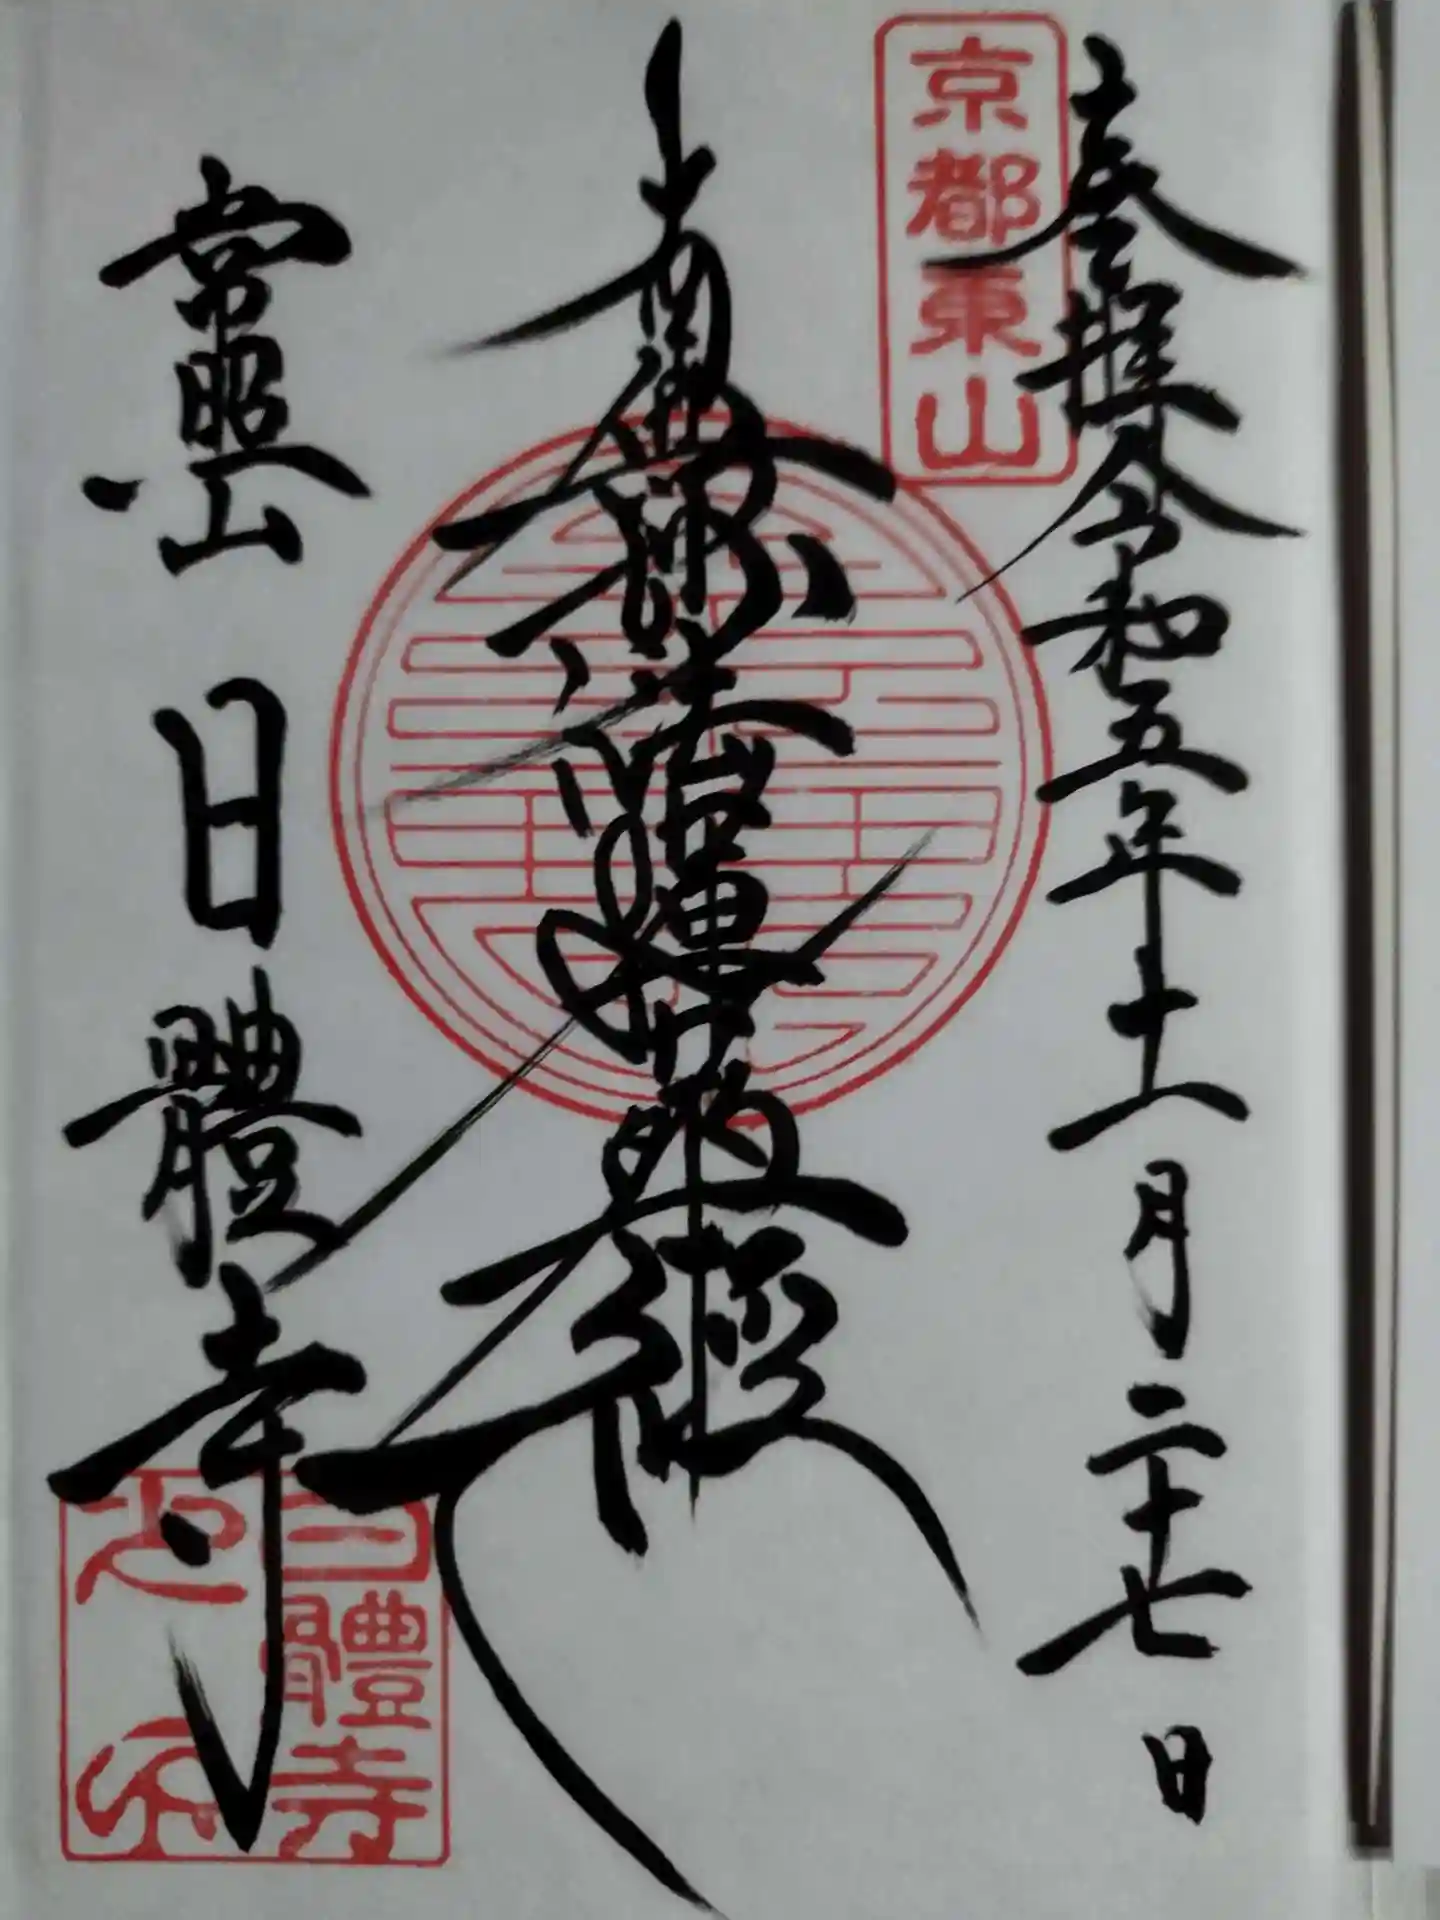 京都東山
奉拝 令和五年十一月二十七日
南無妙法蓮華経
常照山 日體寺
日體寺
之印